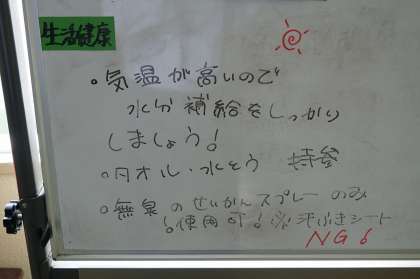 生活健康
・気温が高いので
水分補給をしっかり
しましょう!
・タオル・水とう 持参
・無臭のせいかんスプレーのみ
使用可! ※汗ふきシート
NG!